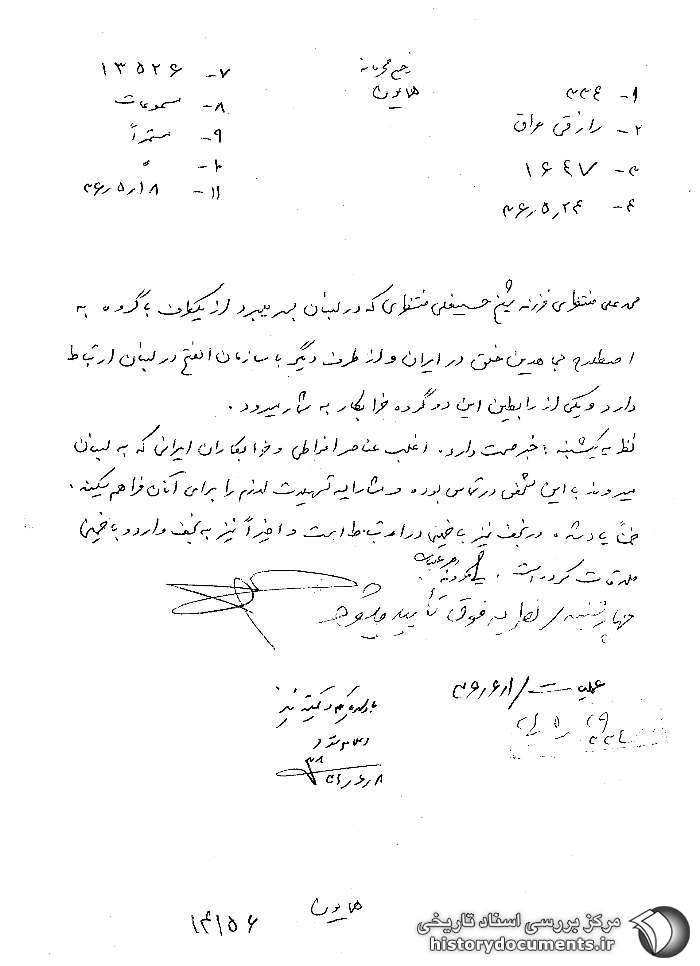 خیلی محرمانه
همایون
۱- ۳۳۴
۲- رازقی عراق
۳- ۱۶۴۷
۴- ۳۶٫۵٫۲۴
۷- ۱۳۵۲۶
۸- مسموعات
۹- مستمراً
۱۰- "
۱۱- ۳۶٫۵٫۱۸
محمدعلی منتظری فرزند شیخ حسینعلی منتظری که در لبنان بسر میبرد از یکطرف با گروه به
اصطلاح مجاهدین خلق در ایران و از طرف دیگر با سازمان الفتح در لبنان ارتباط
دارد و یکی از رابطین این دو گروه خرابکار به شمار میرود.
نظریه یکشنبه: خبر صحت دارد. اغلب عناصر افراطی و خرابکاران ایرانی که به لبنان
میروند با این شخص در تماس بوده و مشارالیه تسهیلات لازم را برای آنان فراهم میکند.
ضمناً یاد شده در نجف نیز با خمینی در ارتباط است و اخیراً نیز به نجف وارد و با خمینی
ملاقات کرده است.
چهارشنبه/ نظریه فوق تأیید میشود
عملیات/ ۳۶٫۶٫۱
۳۶٫۶٫۸
همایون
۱۳۱۵۶
مرکز بررسی اسناد تاریخی
historydocuments.ir